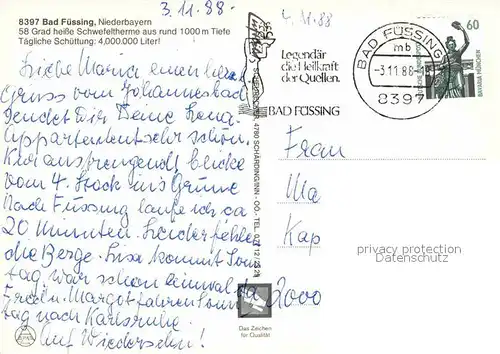 3.11.88-
4.11.88
8397 Bad Füssing, Niederbayern
58 Grad heiße Schwefeltherme aus rund 1000 m Tiefe
Tägliche Schüttung: 4,000.000 Liter!
Liebe Maria einen lieben
Gruss vom Johannesbad
sendet Dir Deine
Appartement sehr schön.
Kur anstrengend, blicke
vom 4. Stock ins Grüne
Nach Füssing laufe ich ca
20 Minuten. Leider fehlen
die Berge. Lisa kommt Sonn
tag, war schon einmal da
Friedr. Margot fahren Sonn
tag nach Karlsruhe.
Auf Wiedersehen!
Legendär
die Heilkraft
der Quellen.
BAD FÜSSING
BAD FÜSSING
mb
-3.11.88-18
8397
60
BAVARIA MÜNCHEN
Frau
Ma
Kap
8000
privacy protection
Datenschutz
4780 SCHÄRDING/INN
Das Zeichen
für Qualität